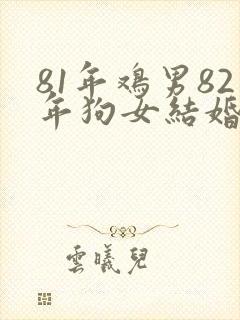 81年鸡男82
年狗女結婚
雲曦兒